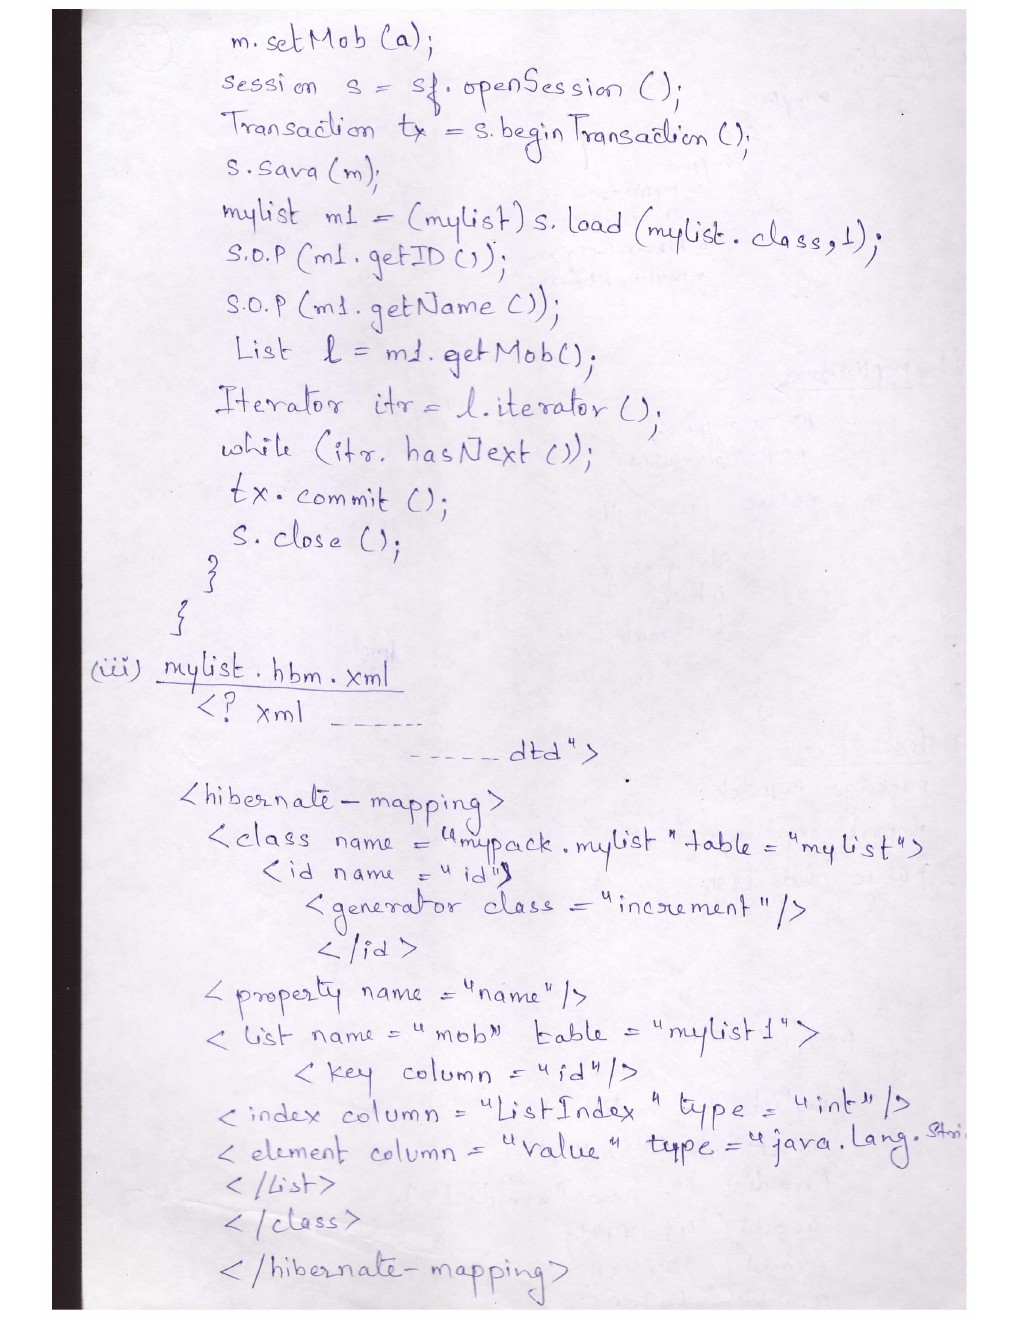 m. setMob (a);
Session s = sf. openSession ();
Transaction tx = s. begin Transaction ();
s. sava (m);
mylist m1 = (mylist) s. load (mylist. class, 1);
S.O.P (m1. getID ());
S.O.P (m1. getName ());
List l = m1. getMob();
Iterator itr = l. iterator ();
while (itr. hasNext ());
tx. commit ();
s. close ();
}
}
(iii) mylist. hbm. xml
<? xml ------
------ dtd">
<hibernate-mapping>
<class name = "mypack. mylist" table = "mylist">
<id name = "id">
<generator class = "increment"/>
</id>
<property name = "name"/>
<list name = "mob" table = "mylist1">
<key column = "id"/>
<index column = "ListIndex" type = "int"/>
<element column = "value" type = "java. lang. Stri
</list>
</class>
</hibernate-mapping>